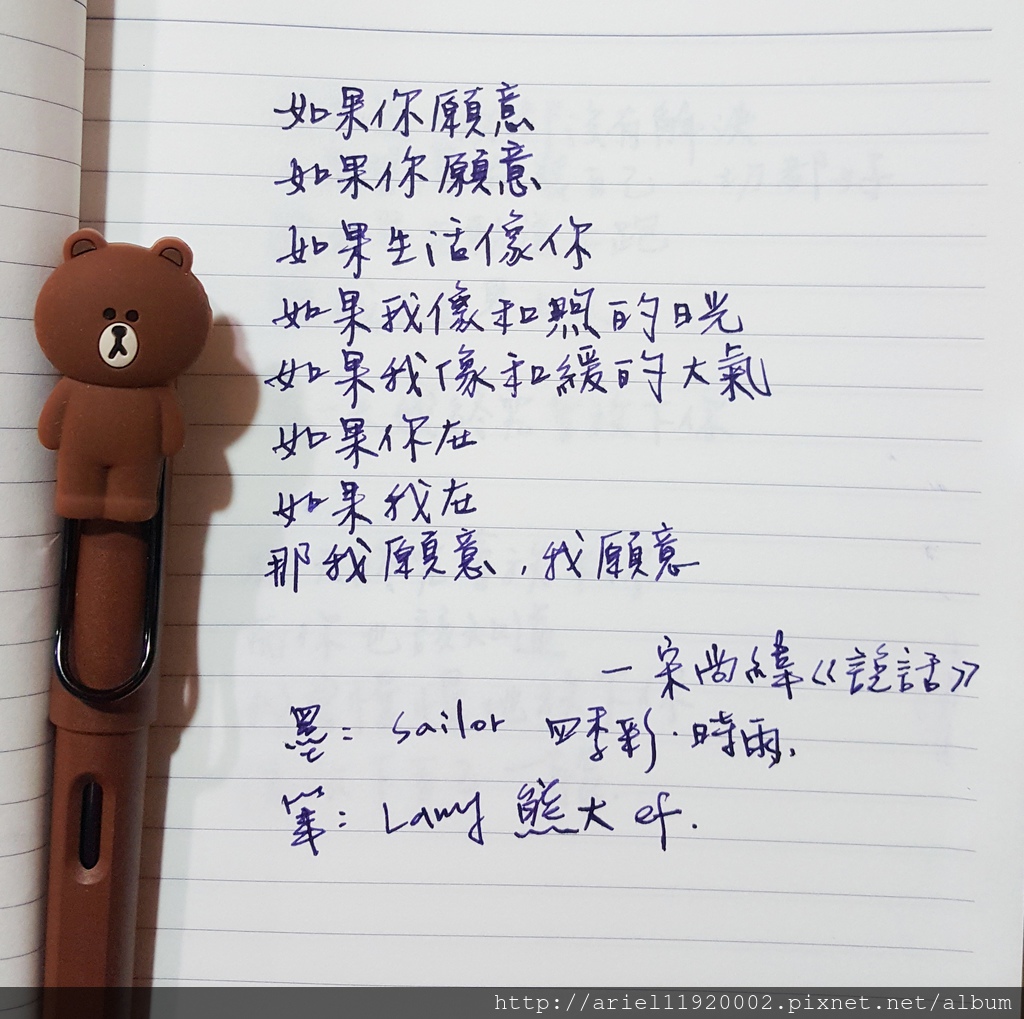 如果你願意
如果你願意
如果生活像你
如果我像和煦的日光
如果我像和緩的大氣
如果你在
如果我在
那我願意,我願意
—宋尚緯《說話》
墨: sailor 四季彩·時雨.
筆: Lamy 熊大 ef.
http://ariel11920002.pixnet.net/album